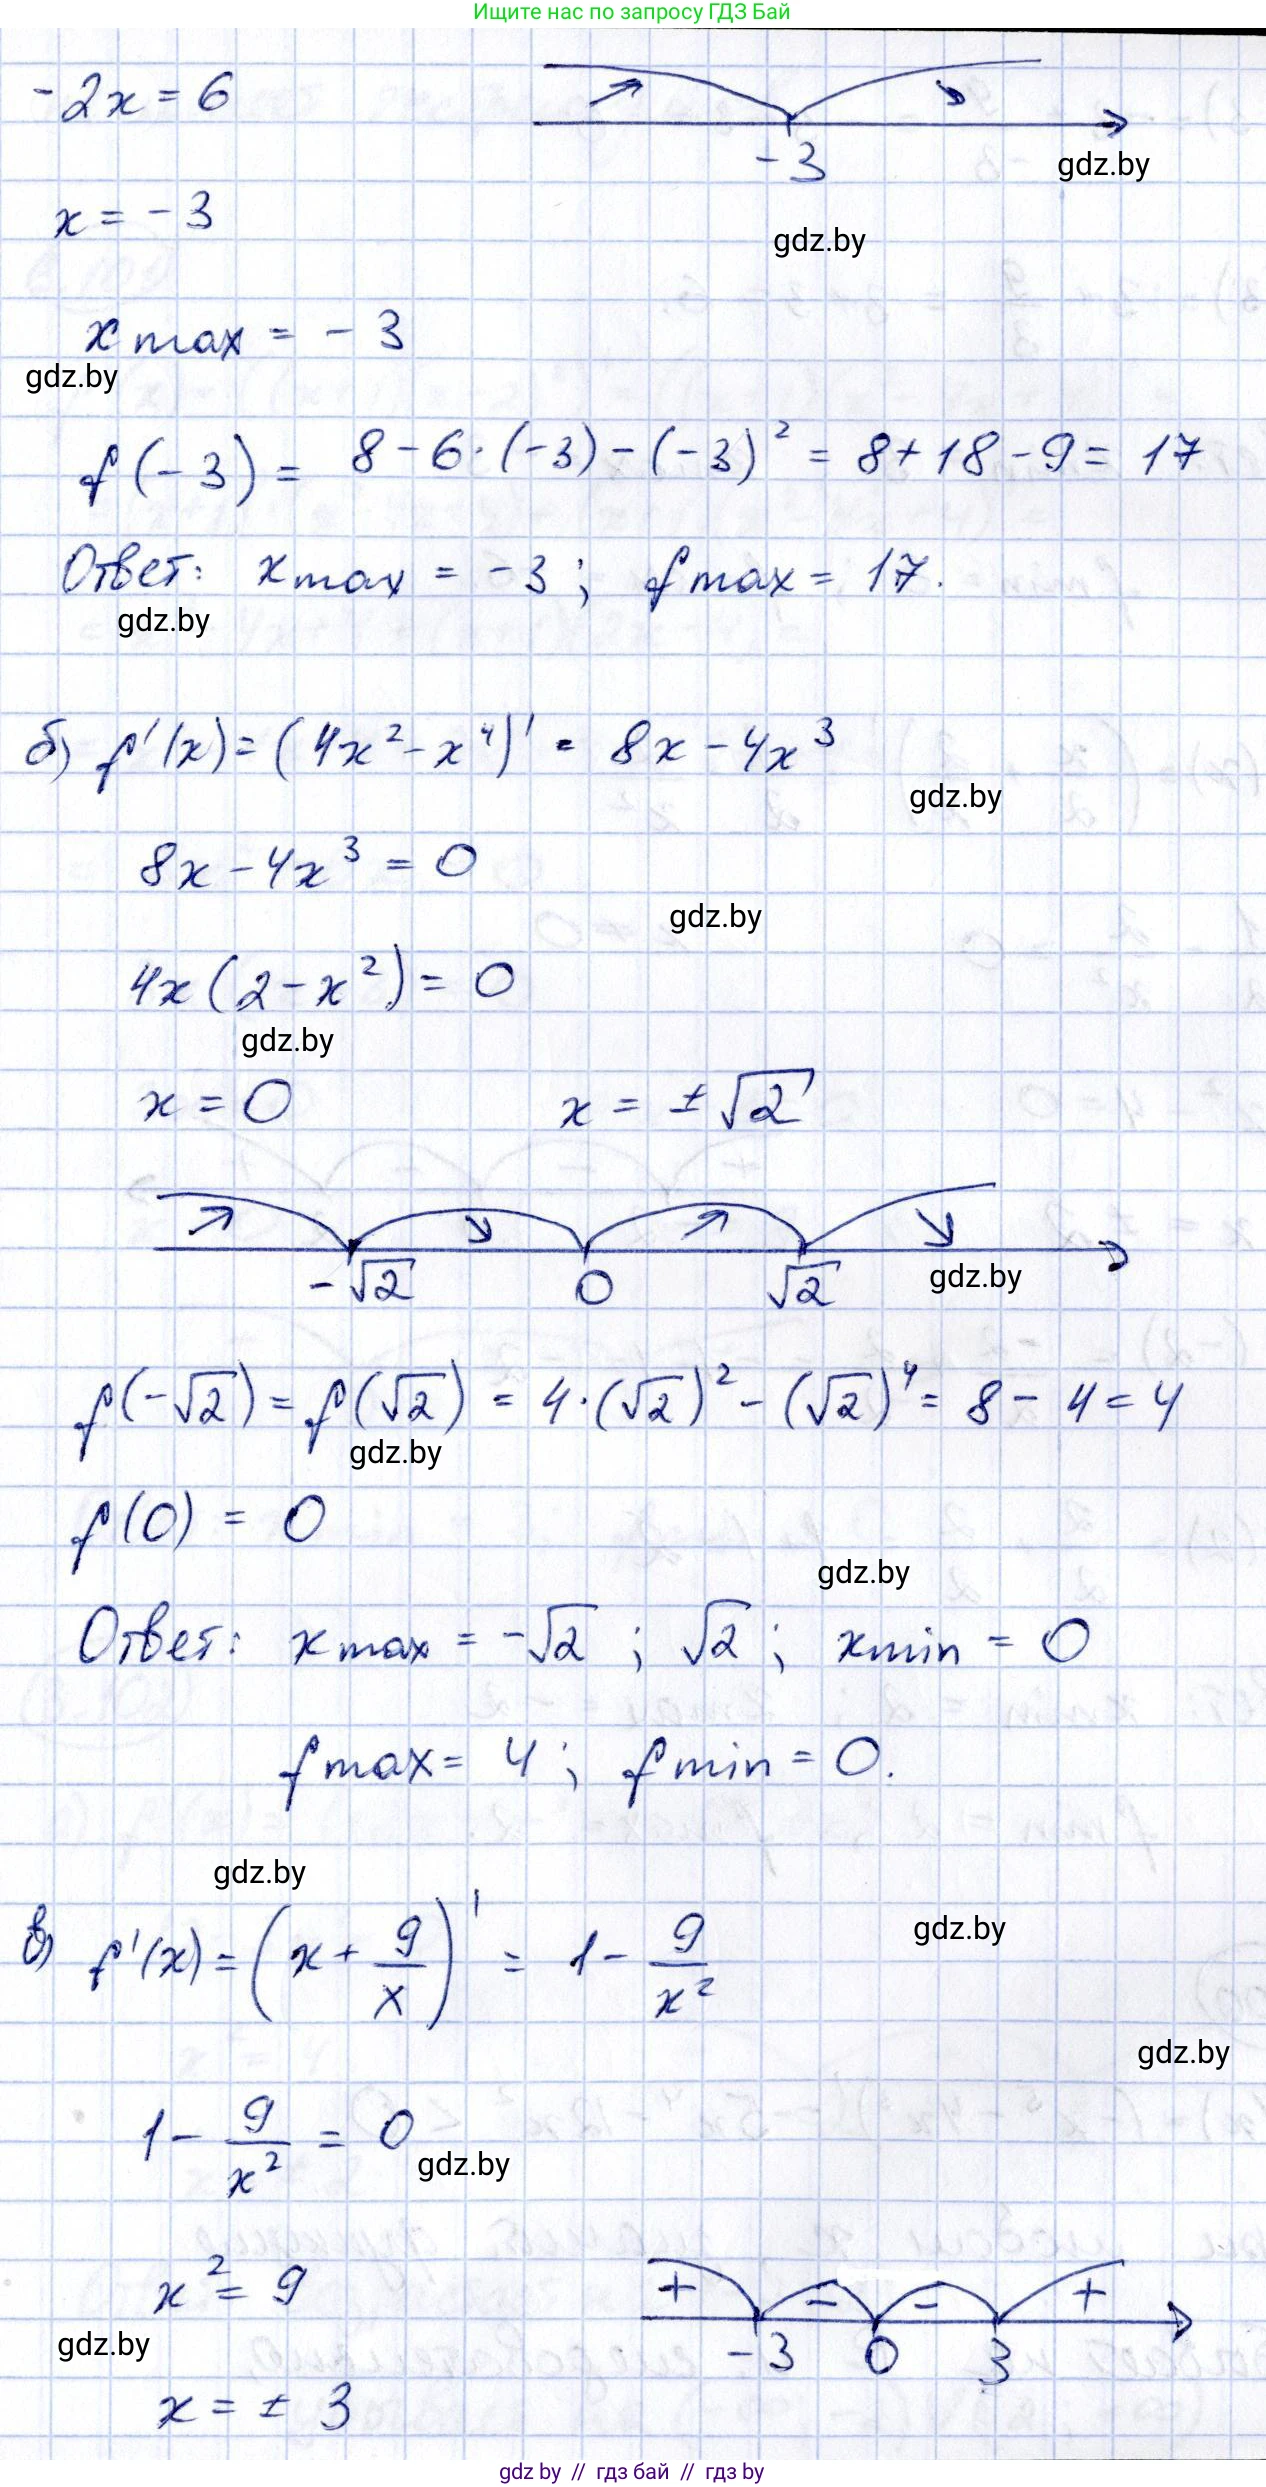 Ищите нас по запросу ГДЗ Бай
-2x = 6
-3
gdz.by
x = -3
gdz.by
x max = -3
gdz.by
f(-3) = 8 - 6·(-3) - (-3)² = 8 + 18 - 9 = 17
Ответ: x max = -3; f max = 17.
gdz.by
б) f'(x) = (4x² - x⁴)' = 8x - 4x³
gdz.by
8x - 4x³ = 0
gdz.by
4x(2 - x²) = 0
gdz.by
x = 0 x = ±√2
-√2 0 √2
gdz.by
f(-√2) = f(√2) = 4·(√2)² - (√2)⁴ = 8 - 4 = 4
gdz.by
f(0) = 0
gdz.by
Ответ: x max = -√2; √2; x min = 0
f max = 4; f min = 0.
gdz.by
в) f'(x) = (x + 9/x)' = 1 - 9/x²
gdz.by
gdz.by
1 - 9/x² = 0
gdz.by
x² = 9
+ - - +
-3 0 3
gdz.by
x = ± 3
gdz.by // гдз бай // гдз by